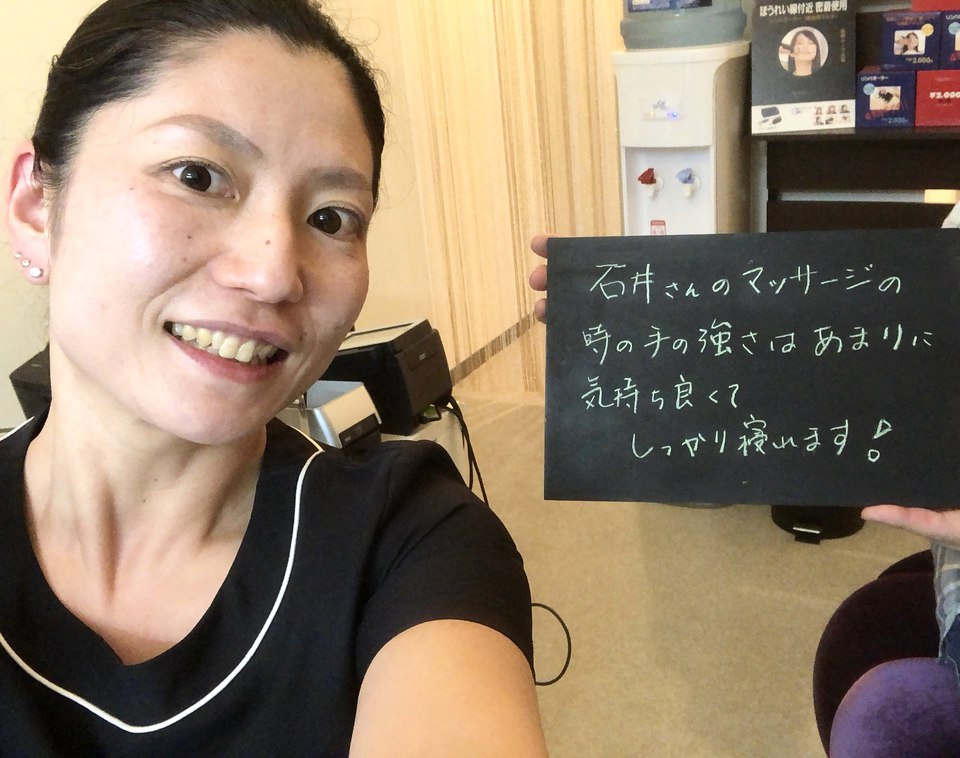 ほうれい線付近 密着使用
リンパボーター
¥2,000
石井さんのマッサージの
時の手の強さはあまりに
気持ち良くて
しっかり寝れます!